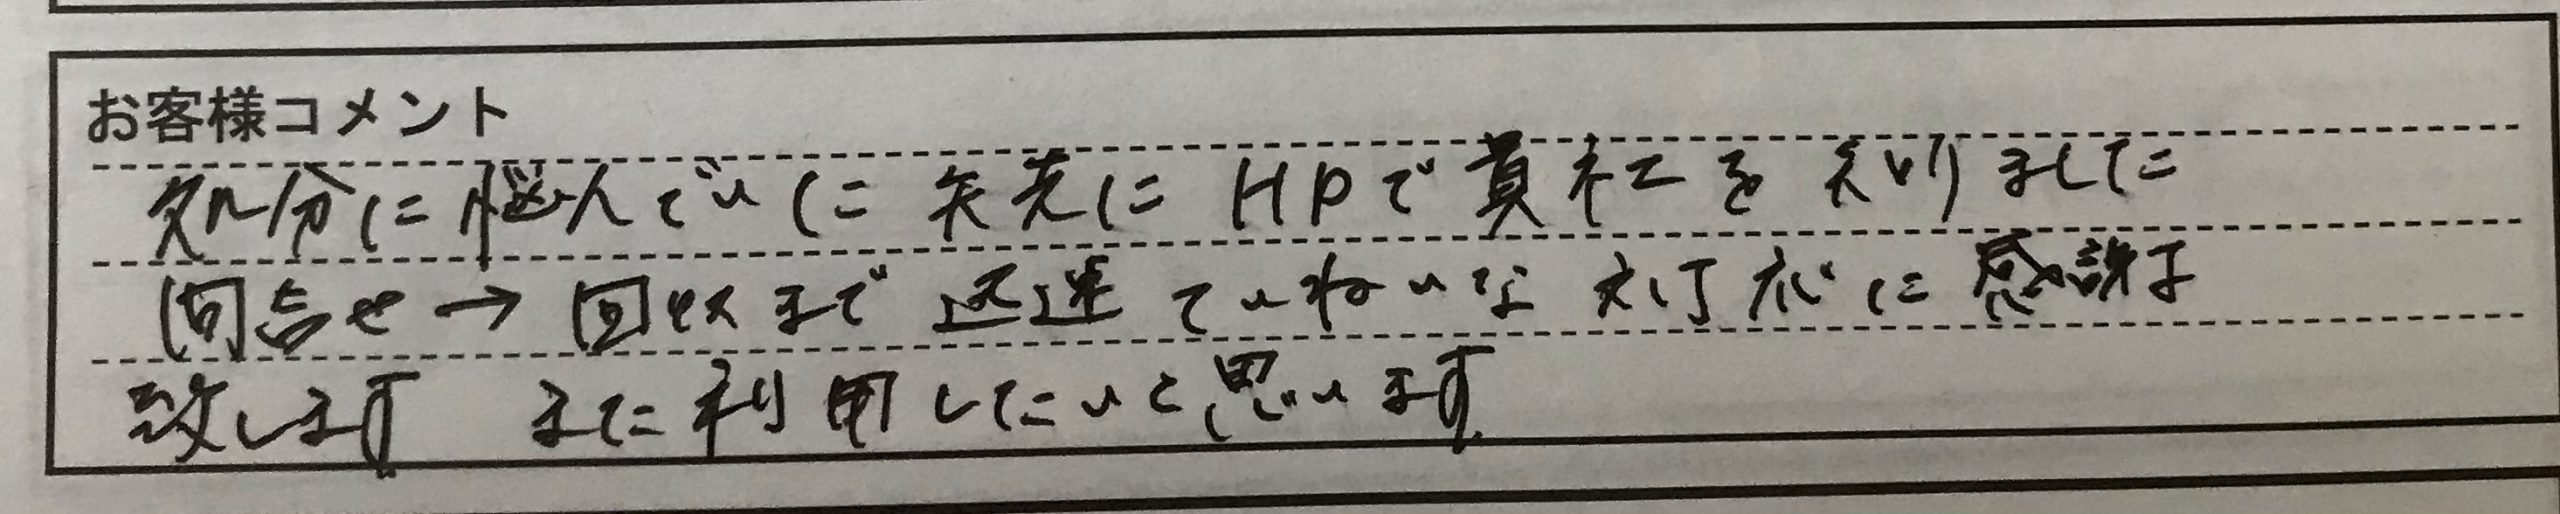 お客様コメント
処分に悩んでいた矢先にHPで貴社を知りました
問合せ→回収まで迅速ていねいな対応に感謝
致します また利用したいと思います